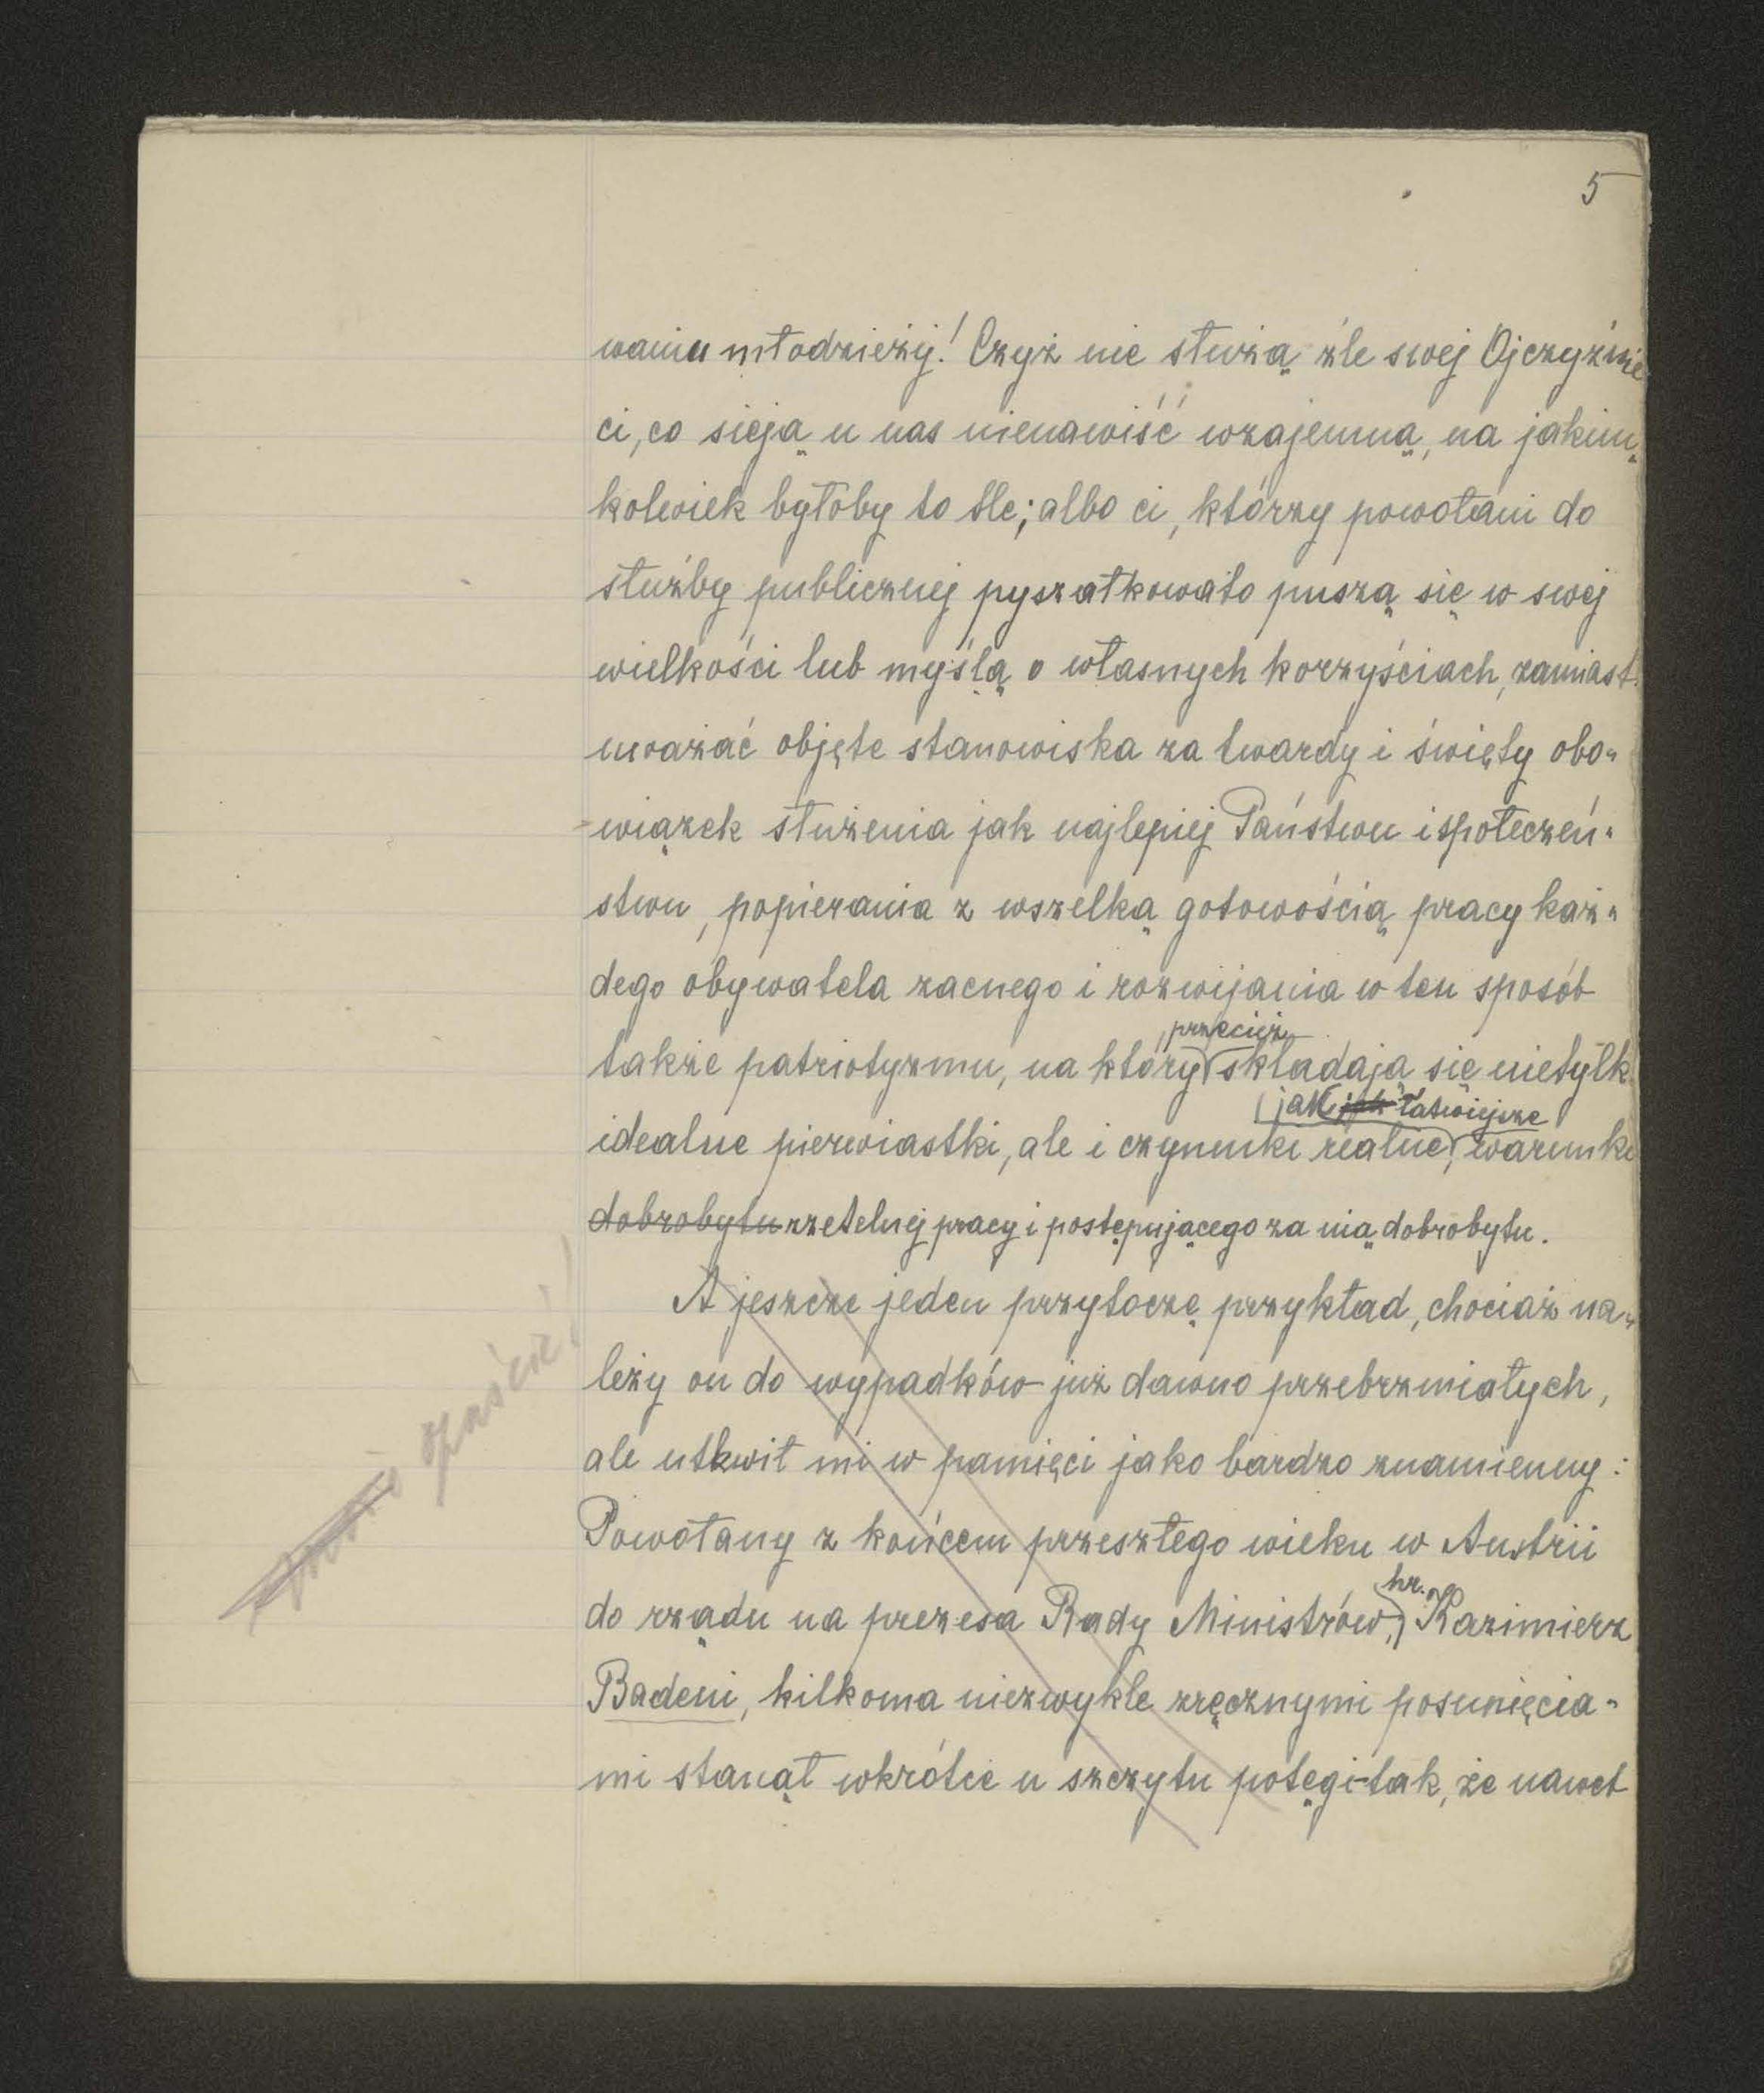 5
waniu młodzieży! Czyż nie służą źle swej Ojczyźnie
ci, co sieją u nas nienawiść wzajemną, na jakim„
kolwiek byłoby to tle; albo ci, którzy powołani do
służby publicznej pyszałkowato puszą się w swej
wielkości lub myślą o własnych korzyściach, zamiast
uważać objęte stanowiska za twardy i święty obo„
wiązek służenia jak najlepiej Państwu i społeczeń„
stwu, popierania z wszelką gotowością pracy każ„
dego obywatela zacnego i rozwijania w ten sposób
przecież
także patriotyzmu, na który składają się nietylk
jak jak łatwiejsze
idealne pierwiastki, ale i czynniki realne, warunki
dobrobytu rzetelnej pracy i postępującego za nią dobrobytu.
A jeszcze jeden przytoczę przykład, chociaż na„
leży on do wypadków już dawno przebrzmiałych,
ale utkwił mi w pamięci jako bardzo znamienny:
Powołany z końcem przeszłego wieku w Austrii
hr.
do rządu na prezesa Rady Ministrów, Kazimierz
Badeni, kilkoma niezwykle zręcznymi posunięcia„
mi stanął wkrótce u szczytu potęgi-tak, że nawet
opuścić!